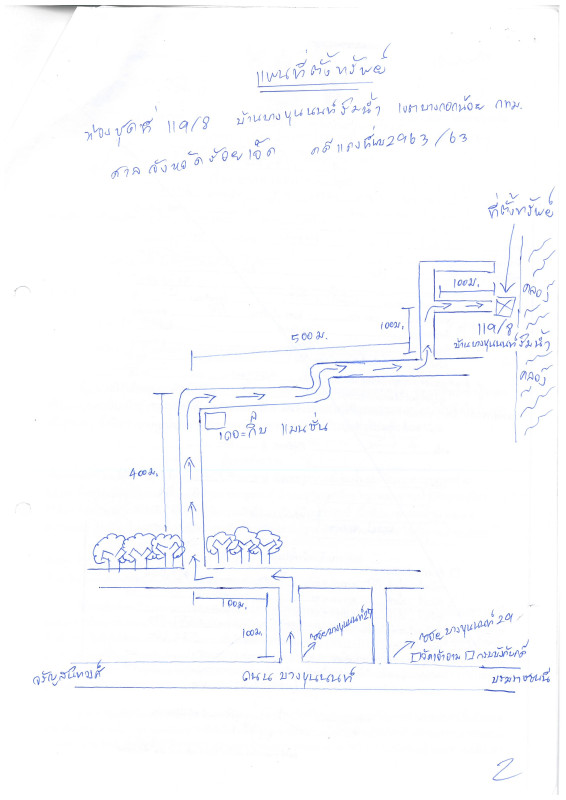 แผนที่ตั้งทรัพย์
ห้องชุดที่ 119/8 บ้านบางขุนนนท์ริมน้ำ เขตบางกอกน้อย กทม.
ศาลจังหวัดร้อยเอ็ด คดีแดงที่ผบ2963/63
ที่ตั้งทรัพย์
คลอง
100ม.
100ม.
119/8
บ้านบางขุนนนท์ริมน้ำ
500ม.
คลอง
แมนชั่น
400ม.
100ม.
100ม.
ซอยบางขุนนนท์27
ซอยบางขุนนนท์ 29
กรมบังคับคดี
จรัญสนิทวงศ์
ถนน บางขุนนนท์
บรมราชชนนี
2